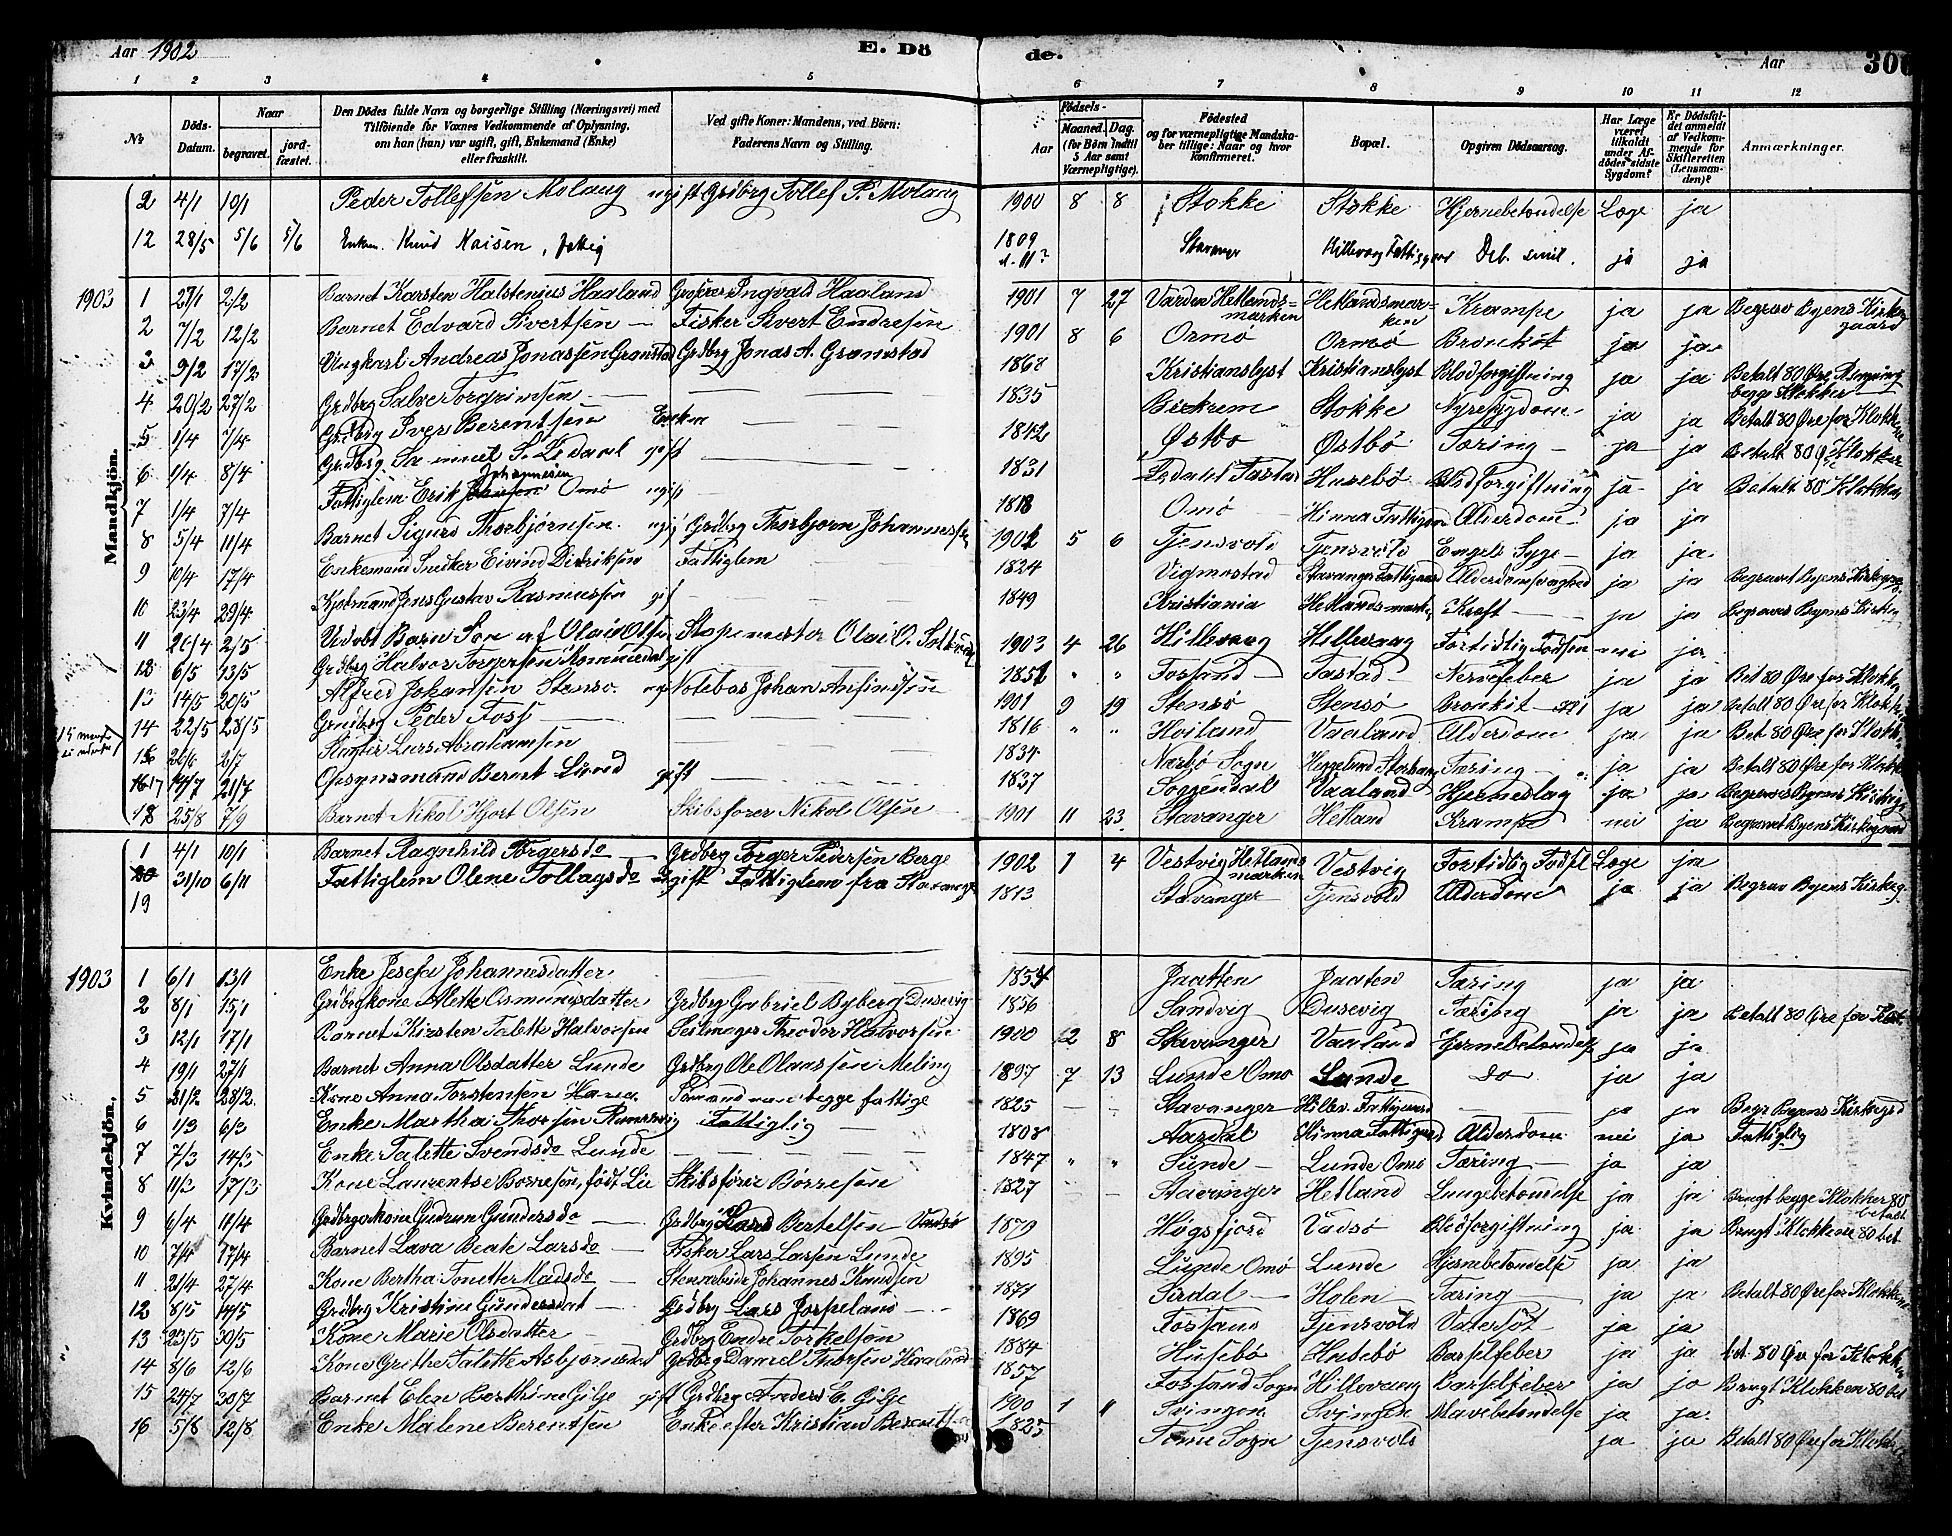 Aar 1902 E. Dö de. Aar 300
1 2 3 4 5 6 7 8 9 10 11 12
№ Döds-Datum. Naar begravet. jord-fæstet. Den Dödes fulde Navn og borgerlige Stilling (Næringsvei) med Tilföiende for Voxnes Vedkommende af Oplysning, om han (hun) var ugift, gift, Enkemand (Enke) eller fraskilt. Ved gifte Koner: Mandens, ved Börn: Faderens Navn og Stilling. Födsels- Aar Maaned. Dag. (for Börn indtil 5 Aar samt Værnepligtige). Födested og for værnepligtige Mandskaber tillige: Naar og hvor konfirmeret. Bopæl. Opgiven Dödsaarsag. Har Læge været tilkaldt under Afdödes sidste Sygdom? Er Dödsfaldet anmeldt af Vedkommende for Skifteretten (Lensmanden)? Anmærkninger.
Mandkjön.
2 4/1 10/1 Peder Tollefsen Molaug ugift Grdbrg Tollef P. Molaug 1900 8 8 Stokke Stokke Hjernebetændelse Læge ja
12 28/5 5/6 5/6 Enkem. Knud Kaisen, fattig 1809 Stavanger Hillevaag Fattiggaard Deb. senil. ja ja
1903 1 27/1 2/2 Barnet Karsten Halstenius Haaland Ingvald Haaland 1901 7 27 Varden Hetlands-marken Hetlandsmarken Krampe ja ja Begrav Byens Kirkegaard
2 7/2 12/2 Barnet Edvard Sivertsen Fisker Sivert Endresen 1901 8 6 Ormø Ormø Bronkit ja ja
3 9/2 17/2 Ungkarl Andreas Jonassen Gramstad Grdbrg Jonas A. Gramstad 1868 Kristianslyst Kristianslyst Blodforgiftning ja ja Betalt 80 Øre Ringning begge Klokker
4 20/2 27/2 Grdbrg Salve Torgrimsen 1835 Birkrem Stokke Nyresygdom ja ja Betalt 80 Øre for Klokken
5 1/4 7/4 Grdbrg Iver Berentsen Enkem 1842 Østbø Østbø Tæring ja ja Betalt 80 Ø Klokken
6 1/4 8/4 Grdbrg Samuel S. Ledaal gift 1831 Ledaal Tastad Husebø Blodforgiftning ja ja Betalt 80 Klokken
7 1/4 7/4 Fattiglem Erik Johannesen Omø ugift 1818 Omø Hinna Fattiggaard Alderdom ja ja
8 5/4 11/4 Barnet Sigurd Thorbjørnsen ugif Grdbrg Thorbjørn Johannessen 1902 5 6 Tjensvold Tjensvold Engelsk Syge ja ja
9 10/4 17/4 Enkemand Snedker Eivind Didriksen Fattiglem 1824 Vigmostad Stavanger Fattiggaard Alderdomsvaghed ja ja Begravet Byens Kirkeg.
10 23/4 29/4 Kjøbmand Jens Gustav Rasmussen gif 1849 Kristiania Hetlandsmarken Kræft ja ja Begravet Byens Kirkeg.
11 26/4 2/5 Udøbt Barn Søn af Olai Olsen Olai O. 1903 4 26 Hillevaag Hillevaag Fortidlig Fødsel nei ja
12 6/5 13/5 Grdbrg Halvor Torgersen gift 1852 " " Fossand Tastad Nervefeber ja ja Bet 80 Øre for Klokken
13 14/5 20/5 Alfred Johansen Stensø ug Notebas Johan Anfindsen 1901 9 19 Stensø Stensø Bronkit ja ja Betalt 80 Øre for Klokken
14 22/5 28/5 Grdbrg Peder Foss 1816 " " Høiland Vaaland Alderdom ja ja Bet 80 Øre for Klokken
15 26/6 2/7 Lars Abrahamsen 1834 Nærbø Sogn Tæring ja ja Betalt 80 Øre for Klokken
16 17 14/7 21/7 Opsynsmand Bernt Lund gift 1837 Soggendal Vaaland Hjerneslag ja ja Begravet Byens Kirkeg
18 25/8 7/9 Barnet Nikol Hjort Olsen Skibsfører Nikolai Olsen 1901 11 23 Stavanger Hetland Krampe nei ja Begravet Byens Kirkegaard
Kvindekjön.
1 4/1 10/1 Barnet Ragnhild Torgersd Grdbrg Torger Pedersen Berge 1902 1 4 Vestvig Hetlandsmarken Vestvig Fortidlig Fødsel Læge ja
19 31/10 6/11 Fattiglem Olene Tollagsd Ugift Fattiglem fra Stavanger 1813 Stavanger Tjensvold Alderdom ja ja Begrav Byens Kirkeg.
1903 1 6/1 13/1 Enke Josefa Johannesdatter 1854 Jaatten Jaaten Tæring ja ja
2 8/1 15/1 Grdbrgkone Alette Osmundsdatter Grdbrg Gabriel Byberg Dusevig 1856 Sandvig Dusevig Tæring ja ja Betalt 80 Øre for Klok.
3 12/1 17/1 Barnet Kirsten Talette Halvorsen Seilmager Theodor Halvorsen 1900 12 8 Stavanger Vaaland Hjernebetændelse ja ja
4 19/1 27/1 Barnet Anna Olsdatter Lunde Grdbrg Ole Olaussen Meling 1897 7 13 Lunde Omø Lunde do ja ja
5 21/2 28/2 Kone Anna Torstensen Hana begge fattige 1825 Stavanger Hillev. Fattiggaard ja ja Begr Byens Kirkegd
6 1/3 6/3 Enke Martha Thorsen Fattiglig 1808 Aardal Hinna Fattiggaard Alderdom nei ja Fattiglig
7 7/3 14/3 Enke Talette Svendsd Lunde 1847 " " Lunde Lunde Omø Tæring ja ja
8 11/3 17/3 Kone Laurentse Børresen, født Lie Skibsfører Børresen 1827 Stavanger Hetland Lungebetændelse ja ja Brugt begge Klokker 80 betalt
9 6/4 11/4 Grdbrgerkone Gudrun Gundersd Grdbrg Lars Bertelsen Vadsø 1879 Høgsfjord Vadsø Blodforgiftning ja ja Brugt Klokkene 80 bet
10 7/4 17/4 Barnet Lava Beate Larsd Fisker Lars Larsen Lunde 1895 Lunde Omø Lunde Hjernebetændelse ja ja
11 21/4 27/4 Kone Bertha Tonette Madsd Stenarbeide Johannes Knudsen 1871 Sirdal Holen Tæring ja ja Betalt 80 Øre for Klokkene
12 8/5 14/5 Grdbrg Kristine Gundersdat Grdbrg Lars Jørpeland 1869 Fossand Tjensvold Vatersot ja ja
13 23/5 30/5 Kone Marie Olsdatter Grdbrg Endre Torkelsen 1884 Husebø Husebø Barselfeber ja ja bet 80 Øre for Klokken
14 8/6 12/6 Kone Grethe Talette Asbjørnsdat Grdbrg Daniel Thorsen Haaland 1857 Fossand Sogn Hillevaag Barselfeber ja ja Brugt Klokken 80 bet
15 24/7 30/7 Barnet Elen Berthine Gilje Grdbrg Anders E. Gilje 1900 1 11 Svingen Svingen Mavebetændelse ja ja
16 5/8 12/8 Enke Malene Berentsen Enke efter Kristian Berentsen 1825 Time Sogn Tjensvold ja ja Betalt 80 Øre for Klokken